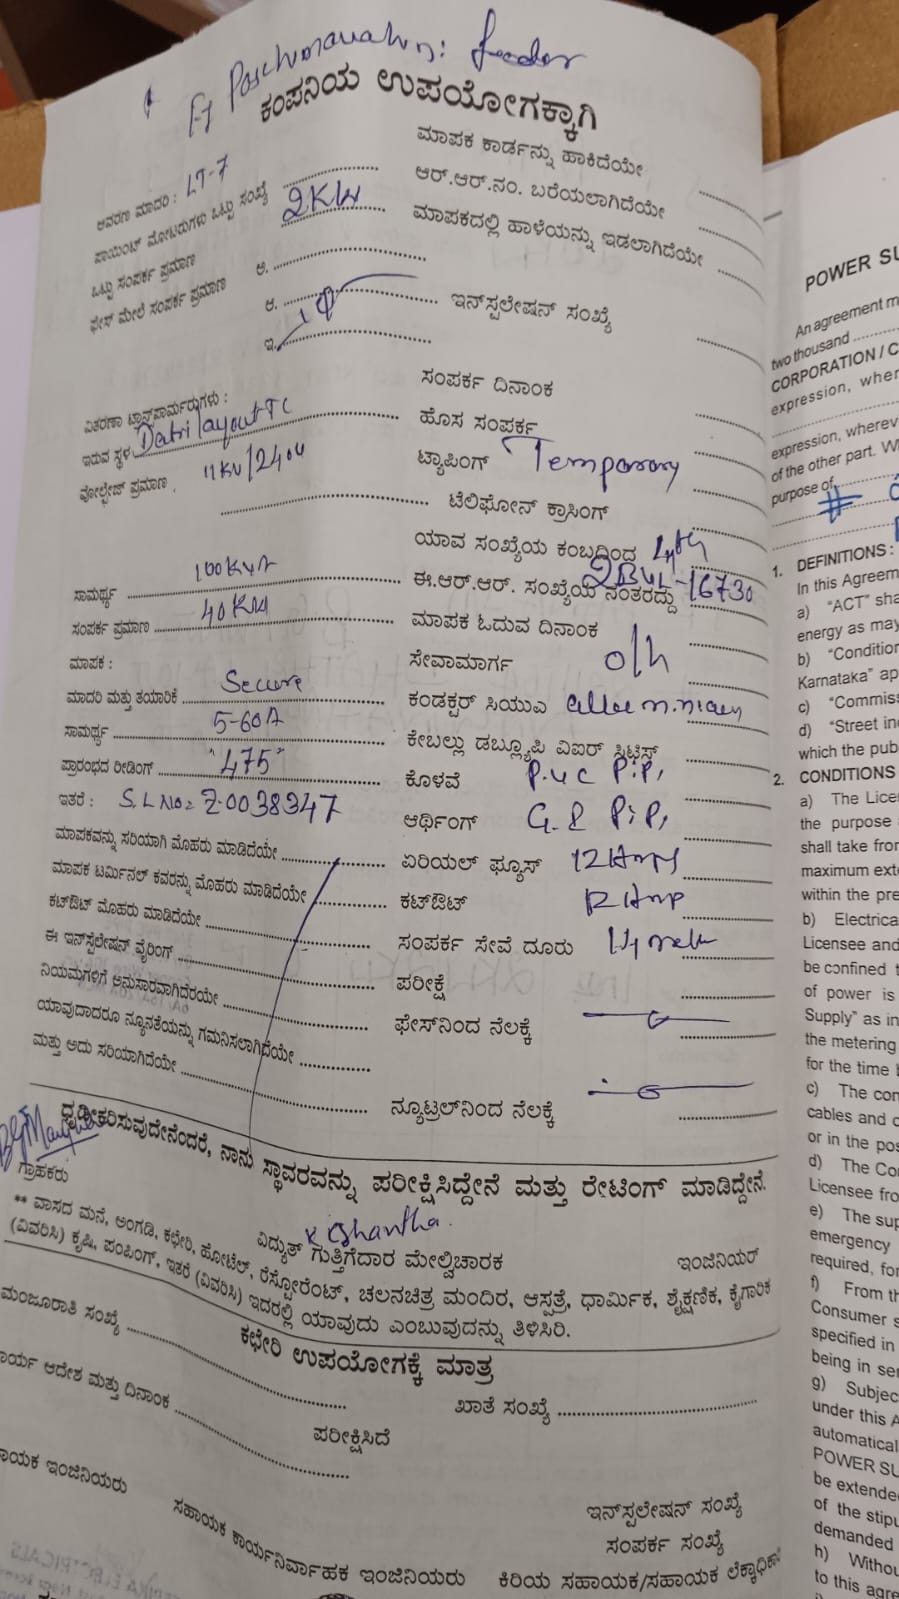 ಕಂಪನಿಯ ಉಪಯೋಗಕ್ಕಾಗಿ
ಮಾಪಕ ಕಾರ್ಡನ್ನು ಹಾಕಿದೆಯೇ
ಆವರಣ ಮಾದರಿ : LT-7
ಆರ್.ಆರ್.ನಂ. ಬರೆಯಲಾಗಿದೆಯೇ
ಪಾಯಿಂಟ್ ಮೋಟರುಗಳು ಒಟ್ಟು ಸಂಖ್ಯೆ
ಮಾಪಕದಲ್ಲಿ ಹಾಳೆಯನ್ನು ಇಡಲಾಗಿದೆಯೇ
ಒಟ್ಟು ಸಂಪರ್ಕ ಪ್ರಮಾಣ 2KW
ಫೇಸ್ ಮೇಲೆ ಸಂಪರ್ಕ ಪ್ರಮಾಣ
ಇನ್‌ಸ್ಟಲೇಷನ್ ಸಂಖ್ಯೆ
ಸಂಪರ್ಕ ದಿನಾಂಕ
ವಿತರಣಾ ಟ್ರಾನ್ಸ್‌ಫಾರ್ಮರುಗಳು :
ಹೊಸ ಸಂಪರ್ಕ
ಇರುವ ಸ್ಥಳ layout TC
ಟ್ಯಾಪಿಂಗ್ Temporary
ವೋಲ್ಟೇಜ್ ಪ್ರಮಾಣ
ಟೆಲಿಫೋನ್ ಕ್ರಾಸಿಂಗ್
ಯಾವ ಸಂಖ್ಯೆಯ ಕಂಬದಿಂದ
ಸಾಮರ್ಥ್ಯ 100KVA
ಈ.ಆರ್.ಆರ್. ಸಂಖ್ಯೆಯ ನಂತರದ್ದು -16730
ಸಂಪರ್ಕ ಪ್ರಮಾಣ 40KW
ಮಾಪಕ ಓದುವ ದಿನಾಂಕ
ಮಾಪಕ :
ಸೇವಾಮಾರ್ಗ o/h
ಮಾದರಿ ಮತ್ತು ತಯಾರಿಕೆ Secure
ಕಂಡಕ್ಟರ್ ಸಿಯುಎ
ಸಾಮರ್ಥ್ಯ 5-60A
ಕೇಬಲ್ಲು ಡಬ್ಲ್ಯೂಪಿ ವಿಐಆರ್
ಪ್ರಾರಂಭದ ರೀಡಿಂಗ್ "475"
ಕೊಳವೆ P.V.C PiP,
ಇತರೆ : S.L NO= Z.0038347
ಆರ್ಥಿಂಗ್ G.I PiP,
ಮಾಪಕವನ್ನು ಸರಿಯಾಗಿ ಮೊಹರು ಮಾಡಿದೆಯೇ
ಏರಿಯಲ್ ಫ್ಯೂಸ್ 12 Amps
ಮಾಪಕ ಟರ್ಮಿನಲ್ ಕವರನ್ನು ಮೊಹರು ಮಾಡಿದೆಯೇ
ಕಟ್‌ಔಟ್ 12 Amp
ಕಟ್‌ಔಟ್ ಮೊಹರು ಮಾಡಿದೆಯೇ
ಸಂಪರ್ಕ ಸೇವೆ ದೂರು
ಈ ಇನ್‌ಸ್ಟಲೇಷನ್ ವೈರಿಂಗ್
ಪರೀಕ್ಷೆ
ನಿಯಮಗಳಿಗೆ ಅನುಸಾರವಾಗಿದೆರಯೇ
ಫೇಸ್‌ನಿಂದ ನೆಲಕ್ಕೆ
ಯಾವುದಾದರೂ ನ್ಯೂನತೆಯನ್ನು ಗಮನಿಸಲಾಗಿದೆಯೇ
ಮತ್ತು ಅದು ಸರಿಯಾಗಿದೆಯೇ
ನ್ಯೂಟ್ರಲ್‌ನಿಂದ ನೆಲಕ್ಕೆ
ಧೃಡೀಕರಿಸುವುದೇನೆಂದರೆ, ನಾನು ಸ್ಥಾವರವನ್ನು ಪರೀಕ್ಷಿಸಿದ್ದೇನೆ ಮತ್ತು ರೇಟಿಂಗ್ ಮಾಡಿದ್ದೇನೆ.
ಗ್ರಾಹಕರು
ವಿದ್ಯುತ್ ಗುತ್ತಿಗೆದಾರ ಮೇಲ್ವಿಚಾರಕ
ಇಂಜಿನಿಯರ್
** ವಾಸದ ಮನೆ, ಅಂಗಡಿ, ಕಛೇರಿ, ಹೋಟೆಲ್, ರೆಸ್ಟೋರೆಂಟ್, ಚಲನಚಿತ್ರ ಮಂದಿರ, ಆಸ್ಪತ್ರೆ, ಧಾರ್ಮಿಕ, ಶೈಕ್ಷಣಿಕ, ಕೈಗಾರಿಕ
(ವಿವರಿಸಿ) ಕೃಷಿ, ಪಂಪಿಂಗ್, ಇತರೆ (ವಿವರಿಸಿ) ಇದರಲ್ಲಿ ಯಾವುದು ಎಂಬುವುದನ್ನು ತಿಳಿಸಿರಿ.
ಕಛೇರಿ ಉಪಯೋಗಕ್ಕೆ ಮಾತ್ರ
ಮಂಜೂರಾತಿ ಸಂಖ್ಯೆ
ಖಾತೆ ಸಂಖ್ಯೆ
ಆದೇಶ ಮತ್ತು ದಿನಾಂಕ
ಪರೀಕ್ಷಿಸಿದೆ
ಇಂಜಿನಿಯರು
ಸಹಾಯಕ ಕಾರ್ಯನಿರ್ವಾಹಕ ಇಂಜಿನಿಯರು
ಇನ್‌ಸ್ಟಲೇಷನ್ ಸಂಖ್ಯೆ
ಸಂಪರ್ಕ ಸಂಖ್ಯೆ
ಕಿರಿಯ ಸಹಾಯಕ/ಸಹಾಯಕ
POWER SU
An agreement m
two thousand
CORPORATION / C
expression, wher
expression, wherev
of the other part. W
purpose of
1. DEFINITIONS :
In this Agreem
a) "ACT" sha
energy as may
b) "Condition
Karnataka" ap
c) "Commiss
d) "Street in
which the pub
2. CONDITIONS
a) The Lice
the purpose
shall take from
maximum exte
within the pre
b) Electrica
Licensee and
be confined t
of power is
Supply" as in
the metering
for the time b
c) The con
cables and o
or in the pos
d) The Co
Licensee fro
e) The sup
emergency
required, for
f) From th
Consumer s
specified in
being in ser
g) Subjec
under this A
automatical
POWER SU
be extende
of the stipu
demanded
h) Withou
to this agre